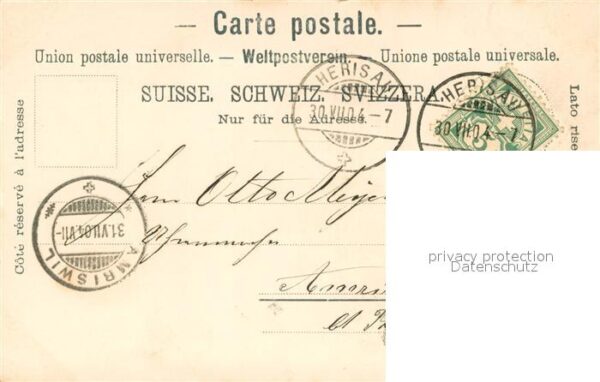 Carte postale.
Union postale universelle. — Weltpostverein. — Unione postale universale.
SUISSE. SCHWEIZ. SVIZZERA.
Nur für die Adresse.
Côté réservé à l'adresse
Lato rise
HERISAU
30.VII.04.-7
HERISAU
30.VII.04.-7
AMRISWIL
31.VII.04.VII-
Herrn Otto Meye
Amri
privacy protection
Datenschutz